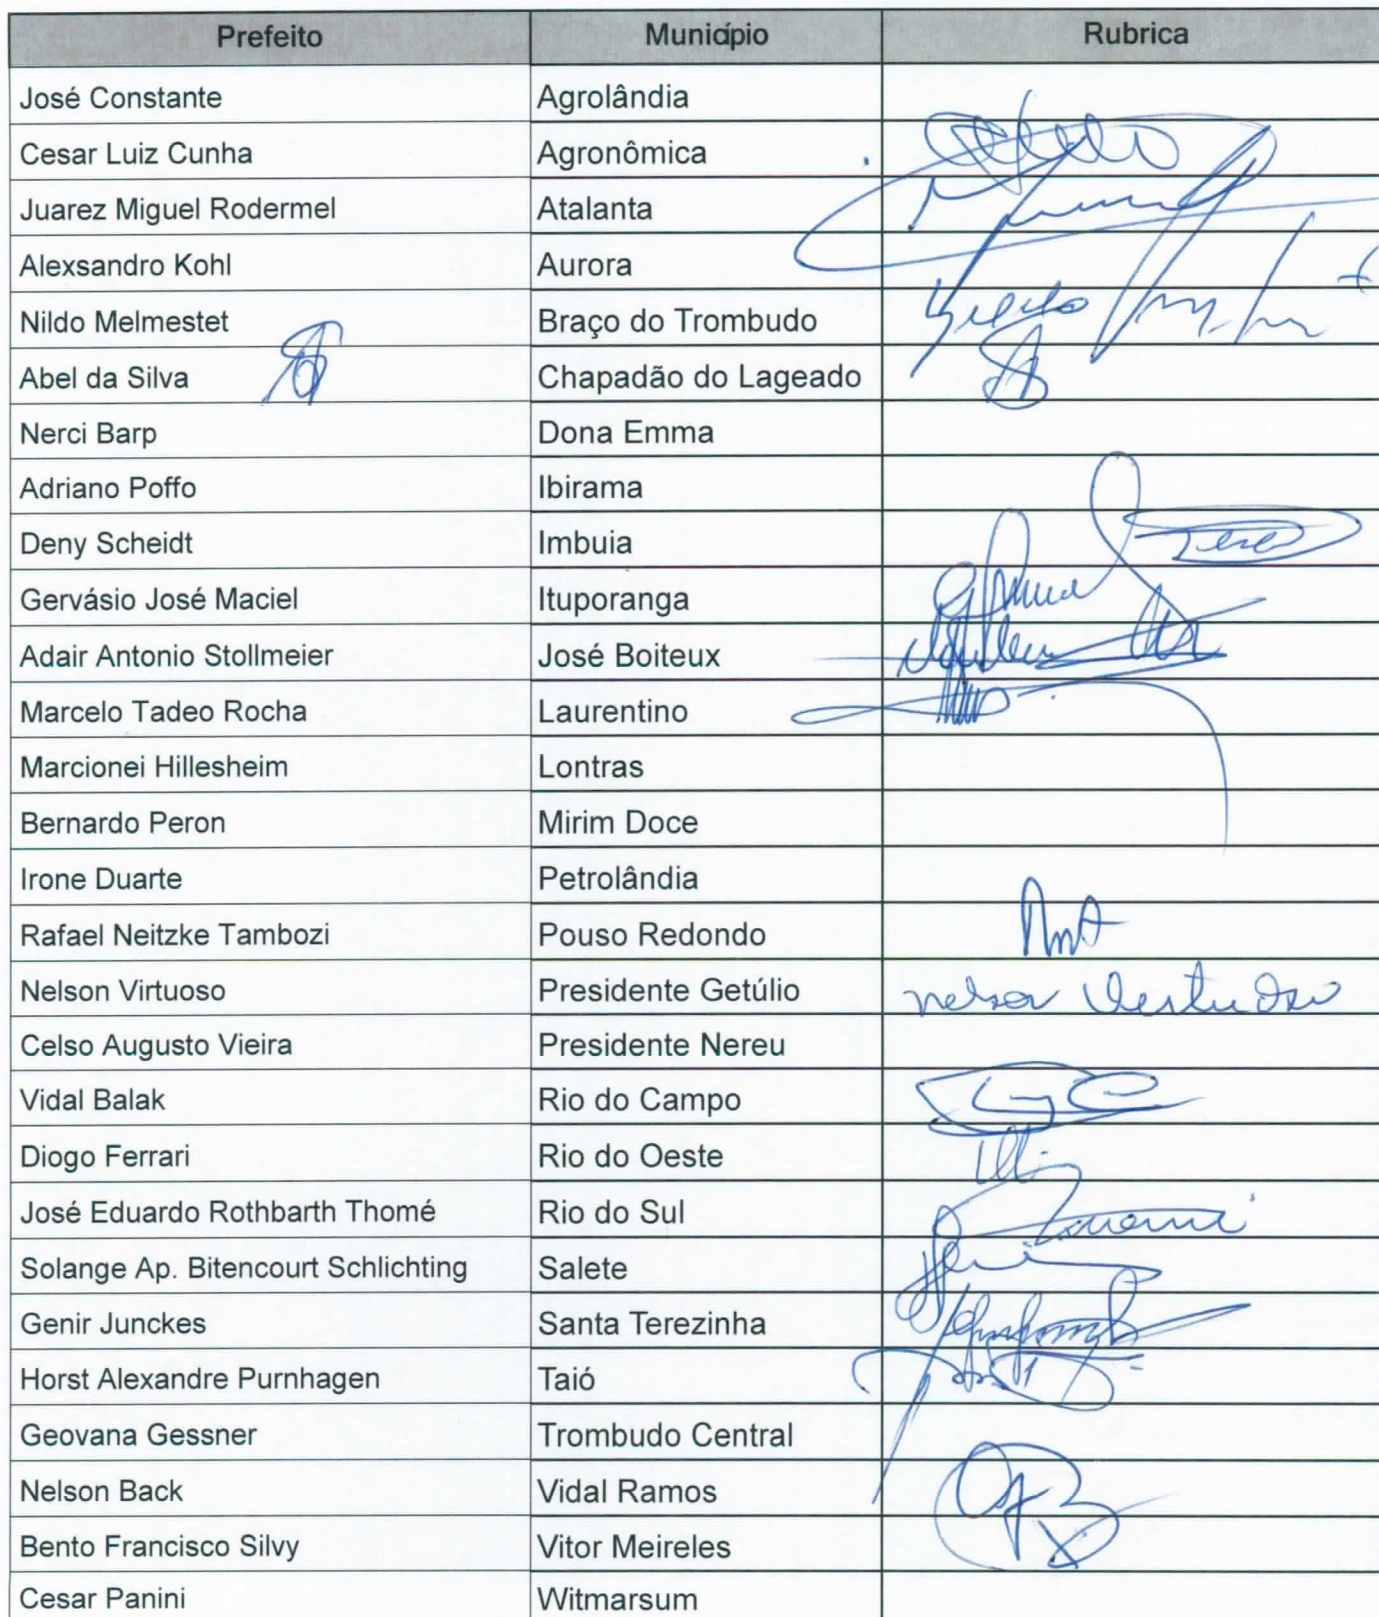 Prefeito Município Rubrica
José Constante Agrolândia
Cesar Luiz Cunha Agronômica
Juarez Miguel Rodermel Atalanta
Alexsandro Kohl Aurora
Nildo Melmestet Braço do Trombudo
Abel da Silva Chapadão do Lageado
Nerci Barp Dona Emma
Adriano Poffo Ibirama
Deny Scheidt Imbuia
Gervásio José Maciel Ituporanga
Adair Antonio Stollmeier José Boiteux
Marcelo Tadeo Rocha Laurentino
Marcionei Hillesheim Lontras
Bernardo Peron Mirim Doce
Irone Duarte Petrolândia
Rafael Neitzke Tambozi Pouso Redondo
Nelson Virtuoso Presidente Getúlio
Celso Augusto Vieira Presidente Nereu
Vidal Balak Rio do Campo
Diogo Ferrari Rio do Oeste
José Eduardo Rothbarth Thomé Rio do Sul
Solange Ap. Bitencourt Schlichting Salete
Genir Junckes Santa Terezinha
Horst Alexandre Purnhagen Taió
Geovana Gessner Trombudo Central
Nelson Back Vidal Ramos
Bento Francisco Silvy Vitor Meireles
Cesar Panini Witmarsum